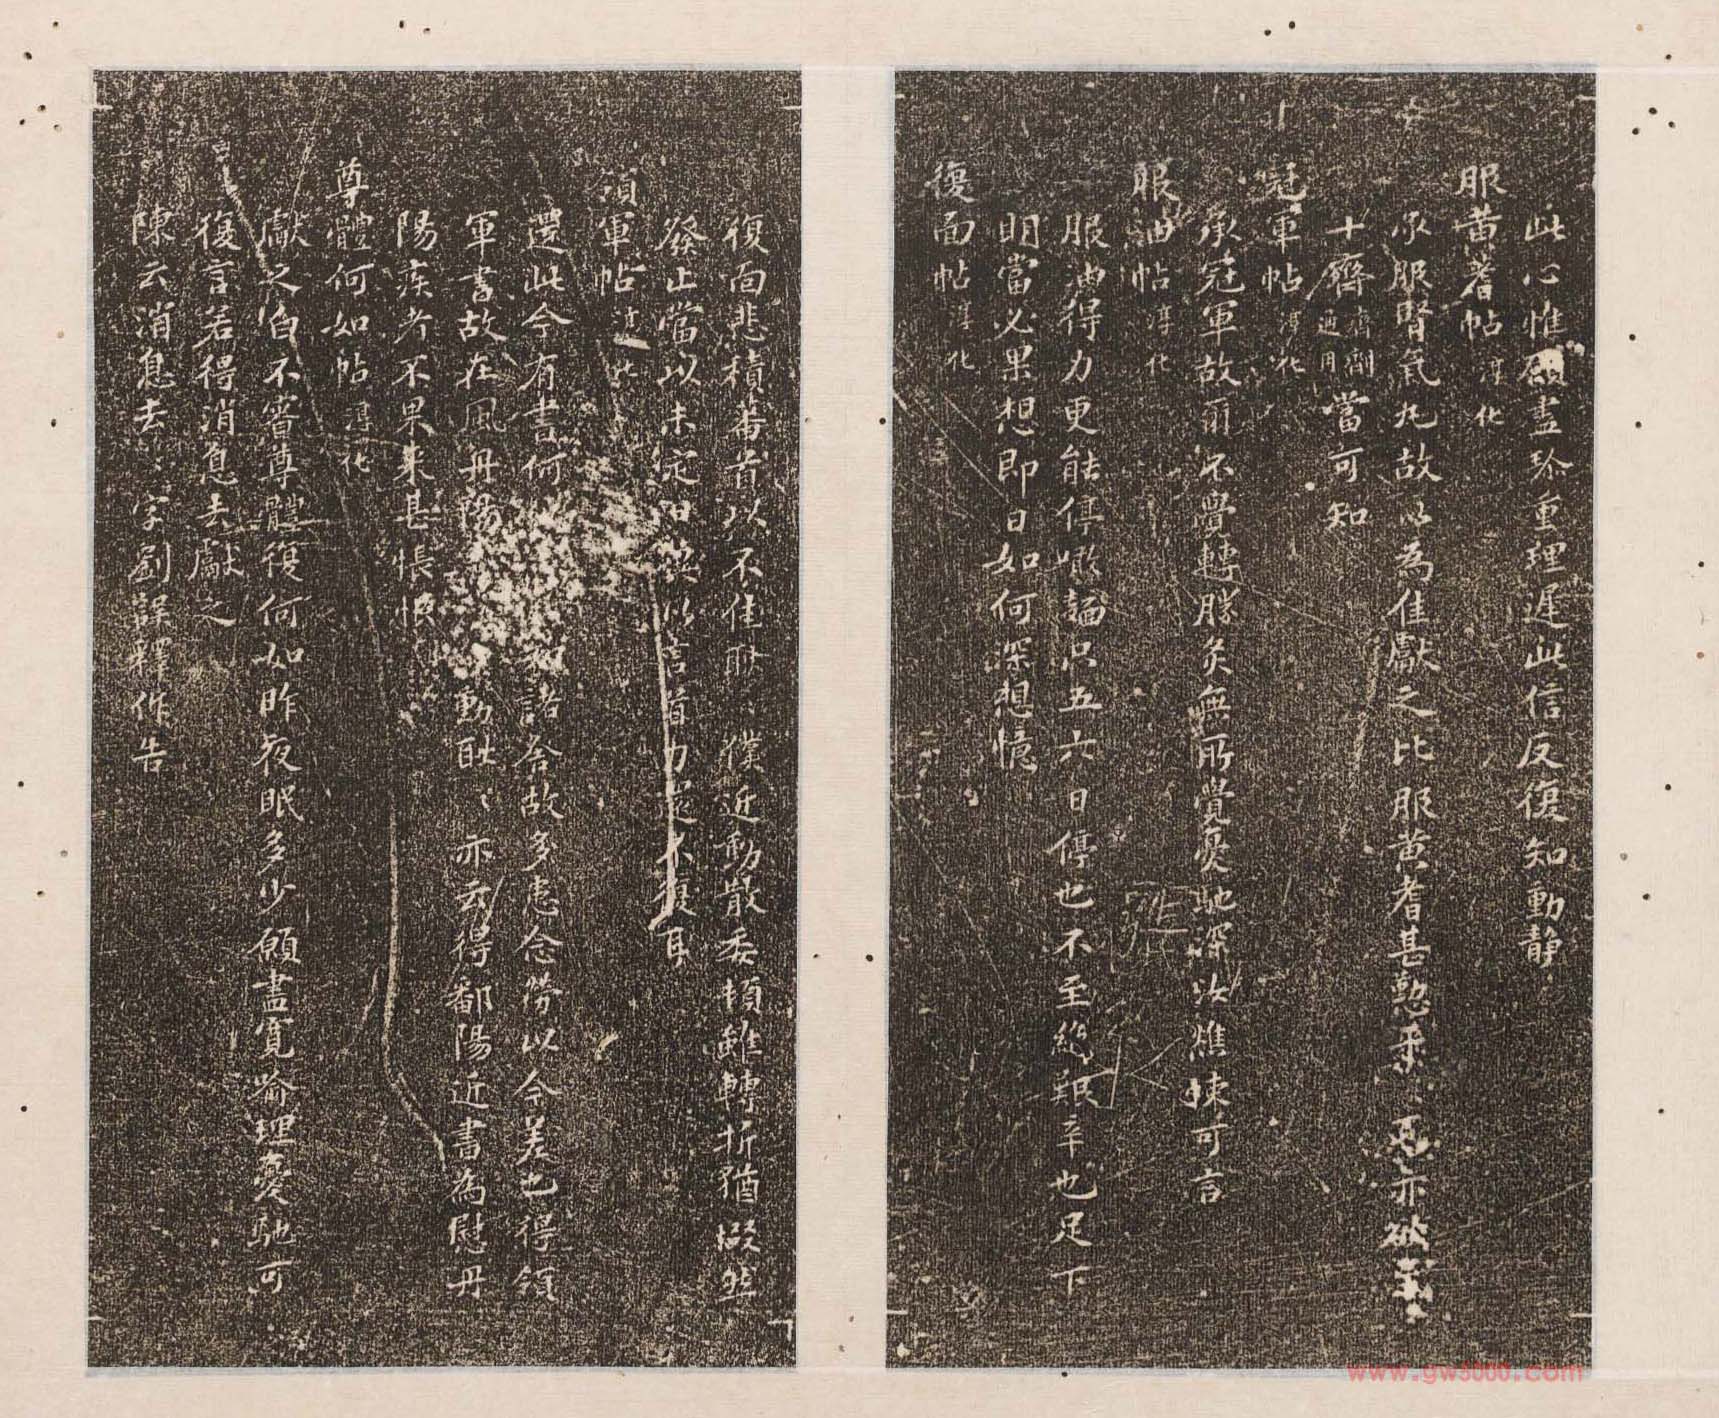 此心惟願盡珍重理遲此信反復知動靜
服黃耆帖 淳化
承服腎氣丸故以為佳獻之比服黃耆甚懃平平〻亦欲至
十齊 齊劑通用 當可知
冠軍帖 淳化
承冠軍故爾不覺轉勝灸無所覺憂馳深汝燋悚可言
服油帖 淳化
服油得力更能停噉麵只五六日停也不至絕艱辛也足下
明當必果想即日如何深想憶
復面帖 淳化
復面悲積蕃首以不佳耿〻僕近動散委頓雖轉折猶惙然
發止當以未定日 以言首力還不復耳
領軍帖 淳化
還此令有書何 諸舍故多患念勞以令差也得領
軍書故在風丹陽 動耿〻亦云得鄱陽近書為慰丹
陽疾者不果來甚悵恨
尊體何如帖 淳化
獻之白不審尊體復何如昨夜眠多少願盡寬喻理憂馳可
復言若得消息去獻之
陳云消息去〻字劉誤釋作告
www.gw5000.com